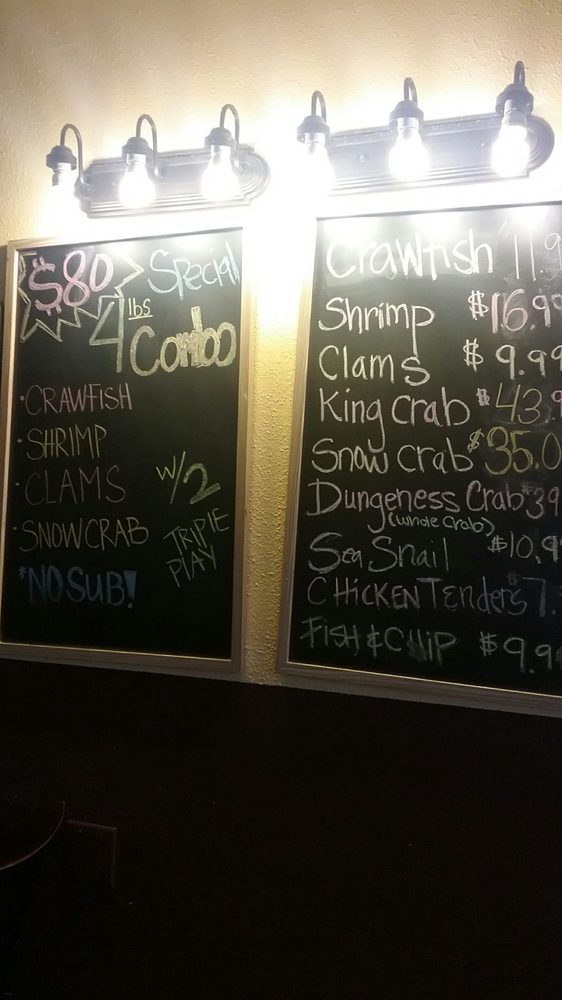 $80 Special
4 lbs Combo
• CRAWFISH
• SHRIMP
• CLAMS
• SNOW CRAB
w/2
TRIPLE
PLAY
*NO SUB!
Crawfish 11.9
Shrimp $16.99
Clams $9.99
King Crab $43.9
Snow Crab $35.0
Dungeness Crab $39
(whole crab)
Sea Snail $10.9
CHICKEN Tenders $7.
FISH & CHIP $9.9